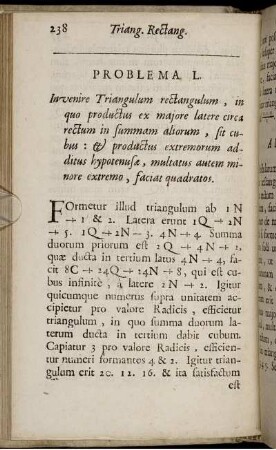 238 Triang. Rectang.
PROBLEMA L.
Invenire Triangulum rectangulum, in
quo productus ex majore latere circa
rectum in summam aliorum, sit cu-
bus: & productus extremorum ad-
ditus hypotenusæ, multatus autem mi-
nore extremo, faciat quadratos.
FOrmetur illud triangulum ab 1 N
+ 1 & 2. Latera erunt 1Q + 2N
+ 5. 1Q + 2N — 3. 4N + 4. Summa
duorum priorum est 2Q + 4N + 2,
quæ ducta in tertium latus 4N + 4, fa-
cit 8C + 24Q + 24N + 8, qui est cu-
bus infinite, a latere 2N + 2. Igitur
quicumque numerus supra unitatem ac-
cipietur pro valore Radicis, efficietur
triangulum, in quo summa duorum la-
terum ducta in tertium dabit cubum.
Capiatur 3 pro valore Radicis, efficien-
tur numeri formantes 4 & 2. Igitur trian-
gulum erit 20. 12. 16. & ita satisfactum
est